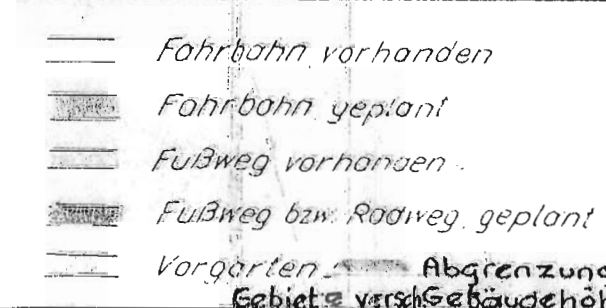 Fahrbahn vorhanden
Fahrbahn geplant
Fußweg vorhanden
Fußweg bzw. Radweg geplant
Vorgarten Abgrenzung
Gebiete versch Gebäudehö